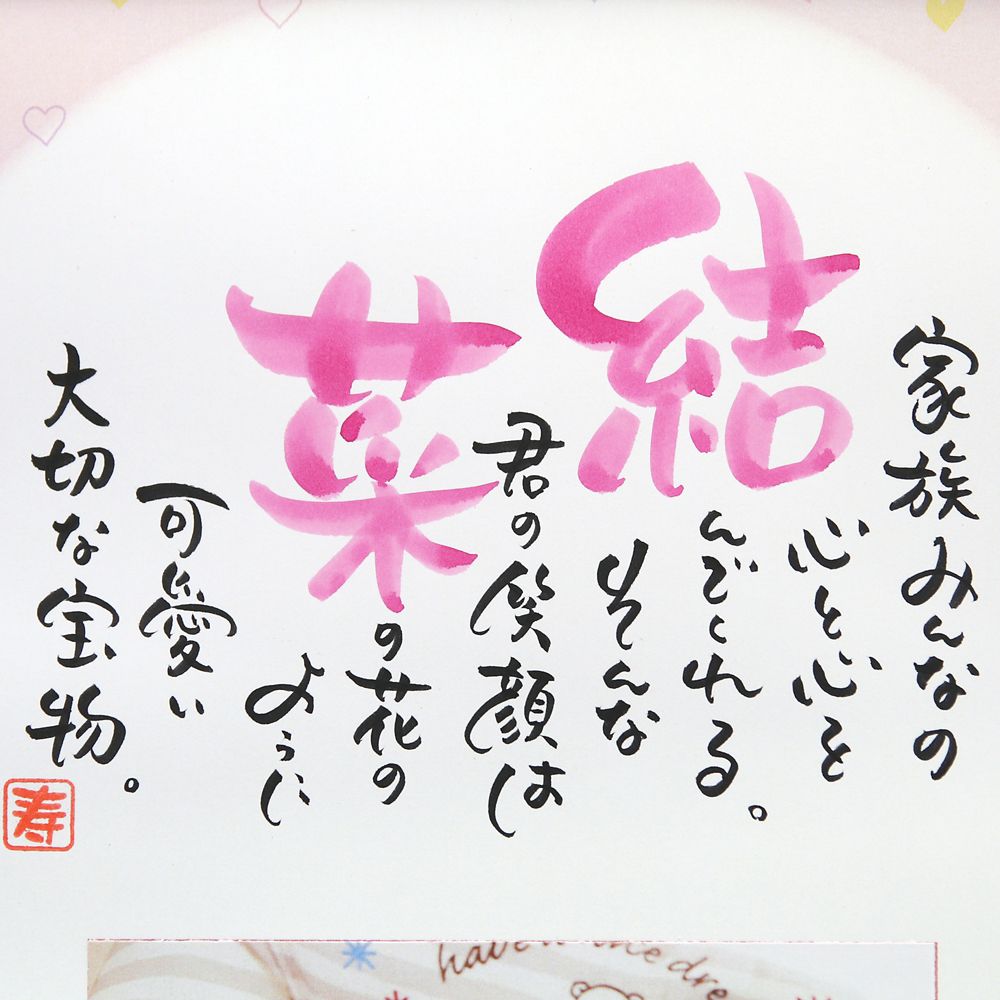 家族みんなの
心と心を
結
んでくれる。
そんな
君の笑顔は
菜
の花の
ように
可愛い
大切な宝物。
寿
have